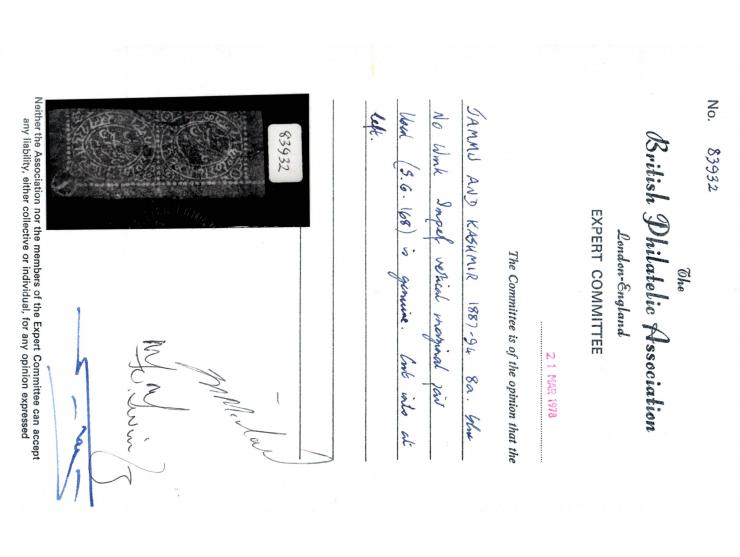 No. 83932
The
British Philatelic Association
London-England
EXPERT COMMITTEE
21 MAR 1978
The Committee is of the opinion that the
JAMMU AND KASHMIR 1887-94 8a. blue
No Wmk Imperf vertical marginal pair
Used (S.G. 168) is genuine. Cut into at
left.
83932
Neither the Association nor the members of the Expert Committee can accept
any liability, either collective or individual, for any opinion expressed